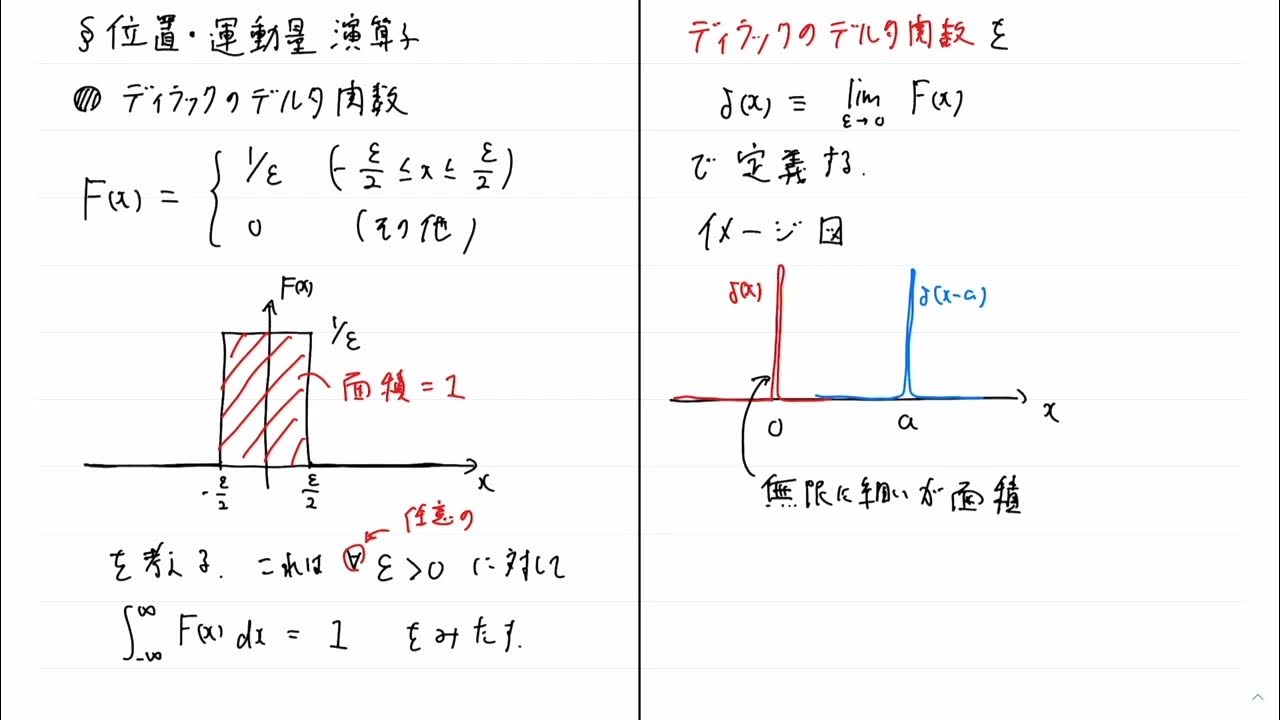 § 位置・運動量 演算子
ディラックのデルタ関数
F(x) = { 1/ε (-ε/2 ≤ x ≤ ε/2)
0 (その他)
F(x)
1/ε
面積 = 1
-ε/2 ε/2 x
任意の
を考える. これは ∀ε>0 に対して
∫_{-∞}^{∞} F(x) dx = 1 をみたす.
ディラックのデルタ関数を
δ(x) ≡ lim_{ε→0} F(x)
で定義する.
イメージ図
δ(x) δ(x-a)
0 a x
無限に細いが面積